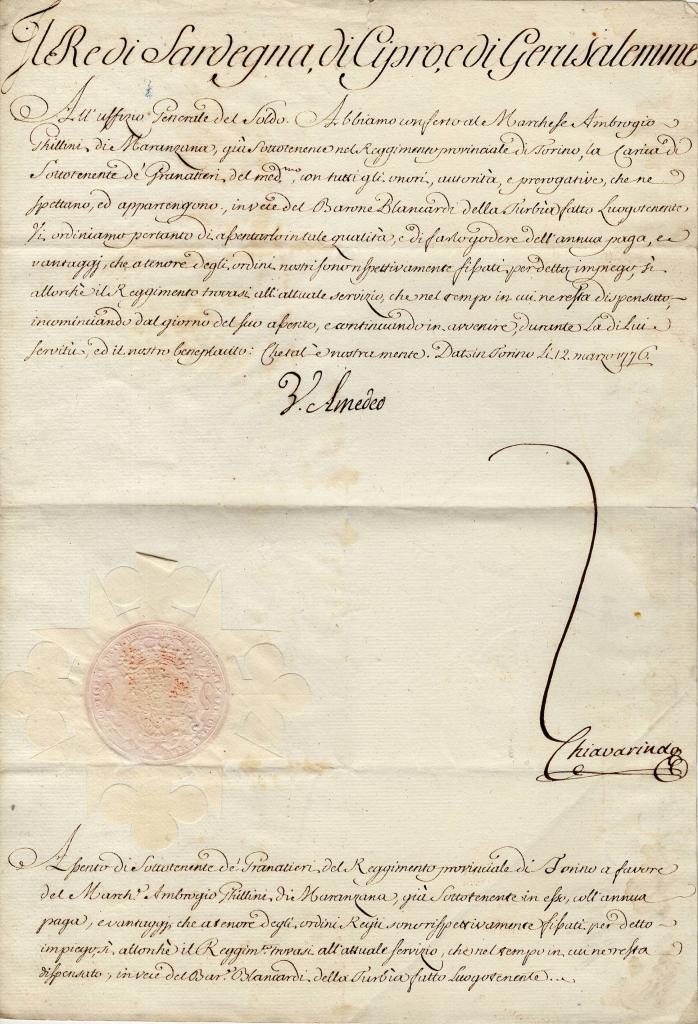 Il Re di Sardegna, di Cipro, e di Gerusalemme
All' uffizio Generale del Soldo. Abbiamo conferto al Marchese Ambrogio
Ghillini di Maranzana, già Sottotenente nel Reggimento provinciale di Torino, la Carica di
Sottotenente de' Granatieri del med.mo, con tutti gli onori, autorità, e prerogative, che ne
spettano, ed appartengono, in vece del Barone Blancardi della Turbia fatto Luogotenente,
Vi ordiniamo pertanto di assentarlo in tale qualità, e di farlo godere dell' annua paga, e
vantaggj, che a tenore degli ordini nostri sono rispettivamente fissati per detto impiego, sì
allorchè il Reggimento trovasi all' attuale servizio, che nel tempo in cui ne resta dispensato,
incominciando dal giorno del suo assento, e continuando in avvenire, durante La di Lui
servitù, ed il nostro beneplacito: Che tal' è nostra mente. Dat. in Torino li 12. marzo 1776.
V. Amedeo
Chiavarina
Assento di Sottotenente de' Granatieri del Reggimento provinciale di Torino a favore
del March.e Ambrogio Ghillini di Maranzana, già Sottotenente in esso, coll' annua
paga, e vantaggj, che a tenore degli ordini Regii sono rispettivamente fissati per detto
impiego, sì allorchè il Reggim.to trovasi all' attuale servizio, che nel tempo in cui ne resta
dispensato, in vece del Bar.e Blancardi della Turbia fatto Luogotenente.